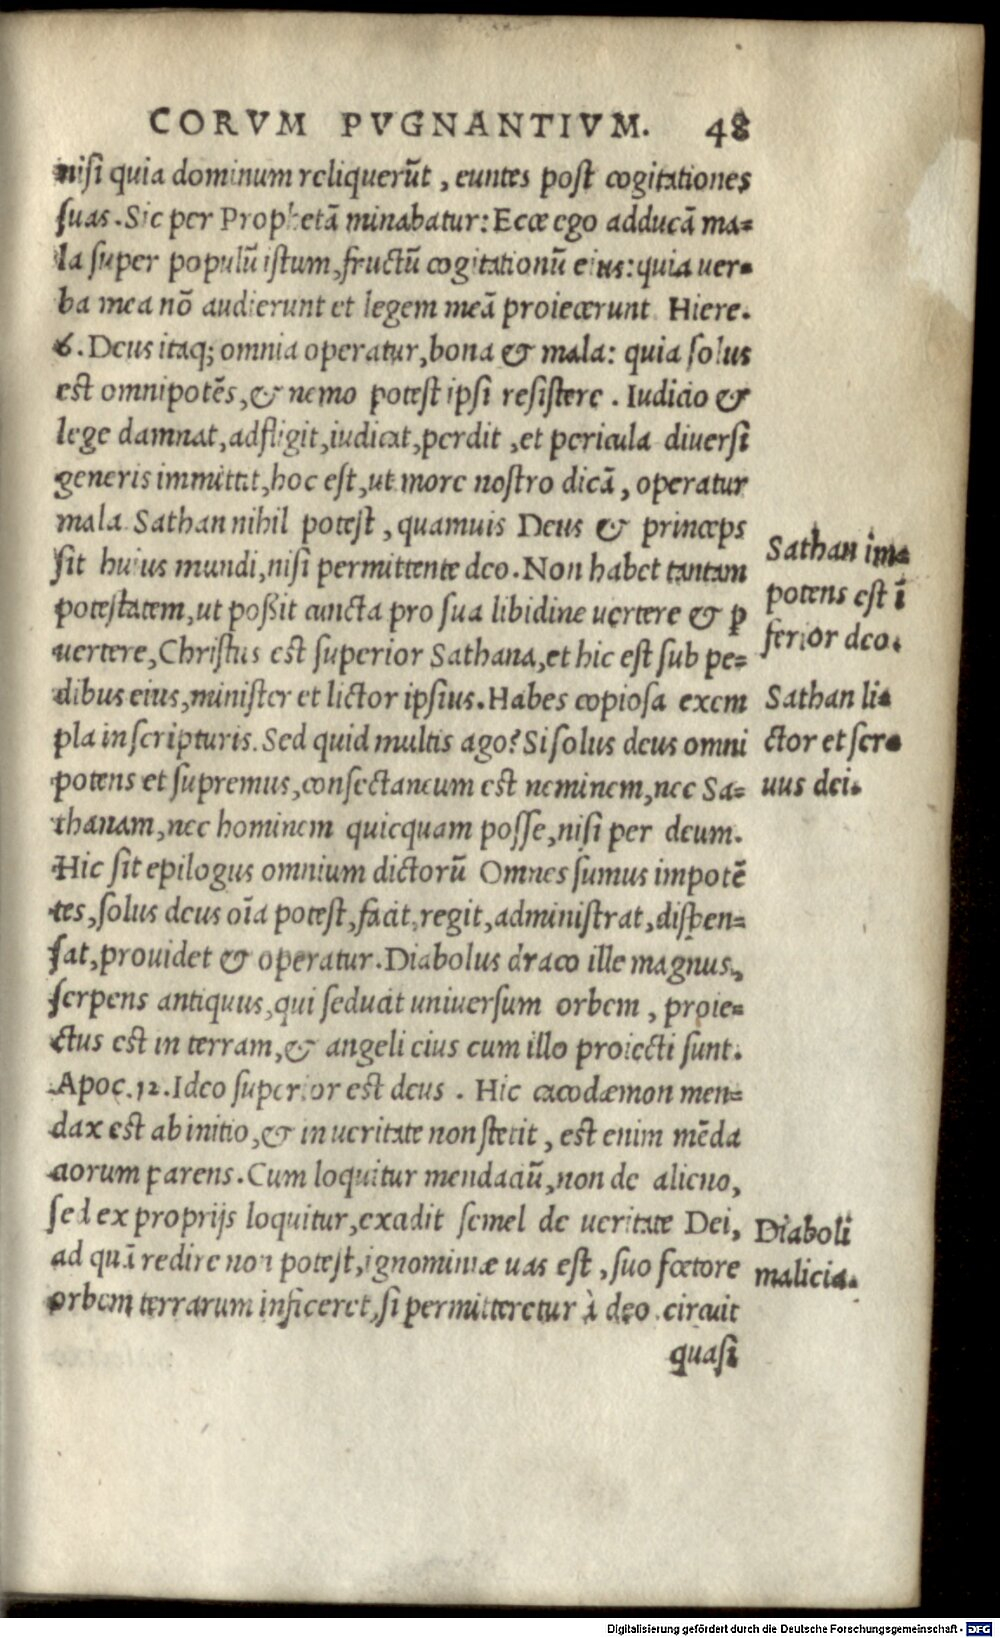 CORVM PVGNANTIVM. 48
nisi quia dominum reliquerūt, euntes post cogitationes
suas. Sic per Prophetā minabatur: Ecce ego adducā ma=
la super populū istum, fructū cogitationū eius: quia uer=
ba mea nō audierunt et legem meā proiecerunt Hiere.
6. Deus itaq; omnia operatur, bona & mala: quia solus
est omnipotēs, & nemo potest ipsi resistere. Iudicio &
lege damnat, adfligit, iudicat, perdit, et pericula diuersi
generis immittit, hoc est, ut more nostro dicā, operatur
mala Sathan nihil potest, quamuis Deus & princeps
sit huius mundi, nisi permittente deo. Non habet tantam
potestatem, ut poßit cuncta pro sua libidine uertere & ꝑ
uertere, Christus est superior Sathana, et hic est sub pe=
dibus eius, minister et lictor ipsius. Habes copiosa exem
pla in scripturis. Sed quid multis ago? Si solus deus omni
potens et supremus, consectaneum est neminem, nec Sa=
thanam, nec hominem quicquam posse, nisi per deum.
Hic sit epilogus omnium dictorū Omnes sumus impotē
tes, solus deus oīa potest, facit, regit, administrat, dispen=
sat, prouidet & operatur. Diabolus draco ille magnus,
serpens antiquus, qui seducit uniuersum orbem, proie=
ctus est in terram, & angeli eius cum illo proiecti sunt.
Apoc. 12. Ideo superior est deus. Hic cacodæmon men=
dax est ab initio, & in ueritate non stetit, est enim mēda
ciorum parens. Cum loquitur mendaciū, non de alieno,
sed ex proprijs loquitur, excidit semel de ueritate Dei,
ad quā redire non potest, ignominiæ uas est, suo fœtore
orbem terrarum inficeret, si permitteretur à deo. circuit
quasi
Sathan im=
potens est ī
ferior deo.
Sathan li=
ctor et ser=
uus dei.
Diaboli
malicia.
Digitalisierung gefördert durch die Deutsche Forschungsgemeinschaft - DFG